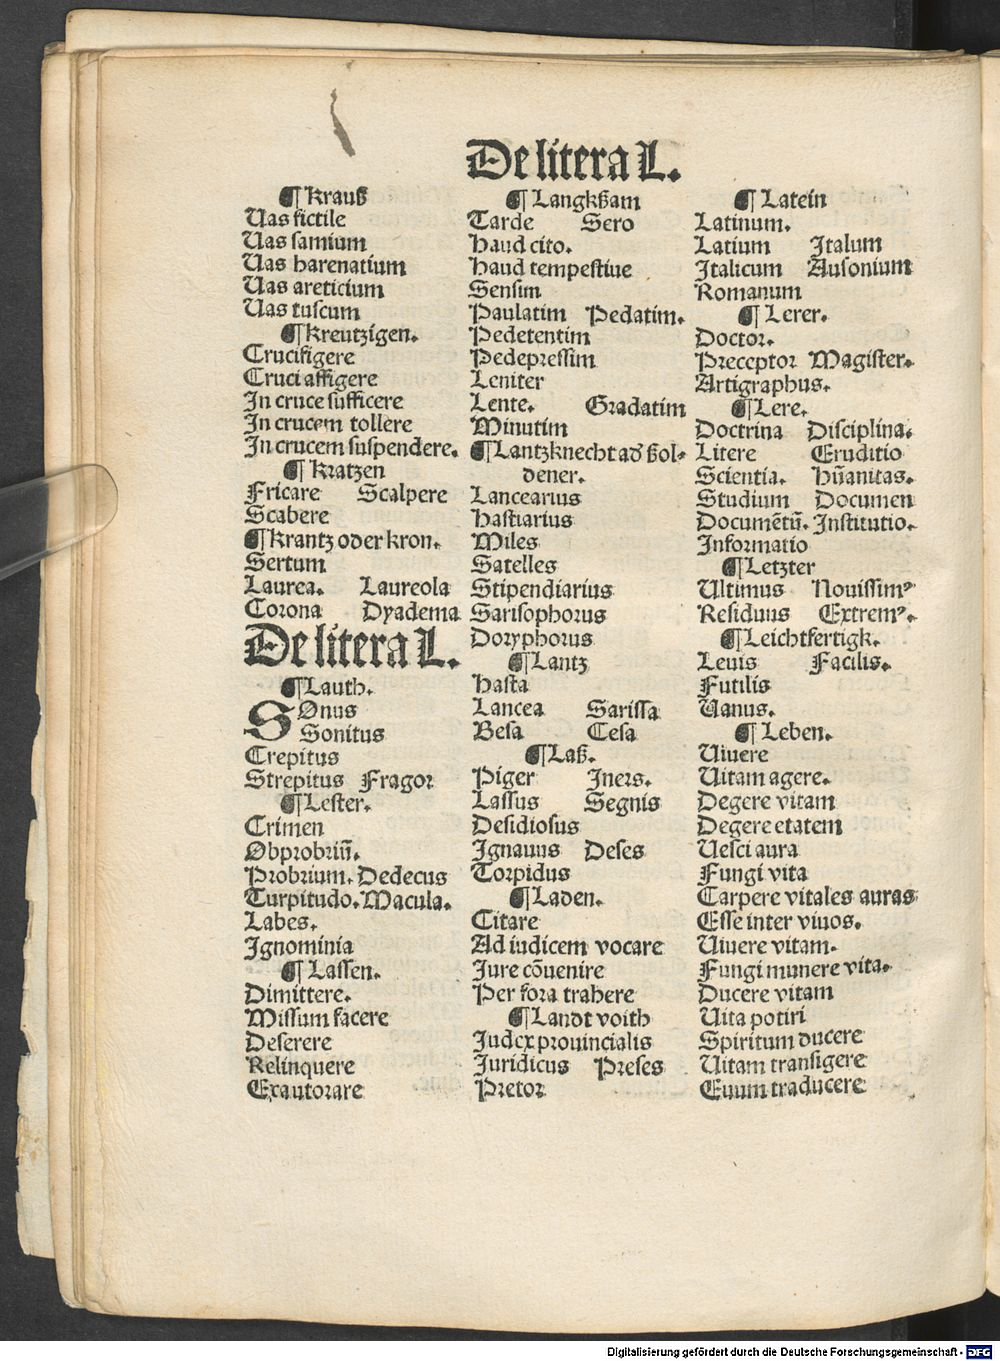 De litera L.
¶ Krauß
Uas fictile
Uas samium
Uas harenatium
Uas areticium
Uas tuscum
¶ Kreutzigen.
Crucifigere
Cruci affigere
In cruce sufficere
In crucem tollere
In crucem suspendere.
¶ Kratzen
Fricare Scalpere
Scabere
¶ Krantz oder kron.
Sertum
Laurea. Laureola
Corona Dyadema
De litera L.
¶ Lauth.
SOnus
Sonitus
Crepitus
Strepitus Fragor
¶ Lester.
Crimen
Obprobriū.
Probrium. Dedecus
Turpitudo. Macula.
Labes.
Ignominia
¶ Lassen.
Dimittere.
Missum facere
Deserere
Relinquere
Exautorare
¶ Langkßam
Tarde Sero
Haud cito.
Haud tempestiue
Sensim
Paulatim Pedatim.
Pedetentim
Pedepressim
Leniter
Lente. Gradatim
Minutim
¶ Lantzknecht ad ßol-
dener.
Lancearius
Hastiarius
Miles
Satelles
Stipendiarius
Sarisophorus
Doryphorus
¶ Lantz
Hasta
Lancea Sarissa
Besa Cesa
¶ Laß.
Piger Iners.
Lassus Segnis
Desidiosus
Ignauus Deses
Torpidus
¶ Laden.
Citare
Ad iudicem vocare
Jure cōuenire
Per fora trahere
¶ Landt voith
Judex prouincialis
Juridicus Preses
Pretor
¶ Latein
Latinum.
Latium Italum
Italicum Ausonium
Romanum
¶ Lerer.
Doctor.
Preceptor Magister.
Artigraphus.
¶ Lere.
Doctrina Disciplina.
Litere Eruditio
Scientia. Hūanitas.
Studium Documen
Documētū. Institutio.
Informatio
¶ Letzter
Ultimus Nouissimꝰ
Residuus Extremꝰ.
¶ Leichtfertigk.
Leuis Facilis.
Futilis
Uanus.
¶ Leben.
Uiuere
Uitam agere.
Degere vitam
Degere etatem
Uesci aura
Fungi vita
Carpere vitales auras
Esse inter viuos.
Uiuere vitam.
Fungi munere vita.
Ducere vitam
Uita potiri
Spiritum ducere
Uitam transigere
Euum traducere
Digitalisierung gefördert durch die Deutsche Forschungsgemeinschaft - DFG